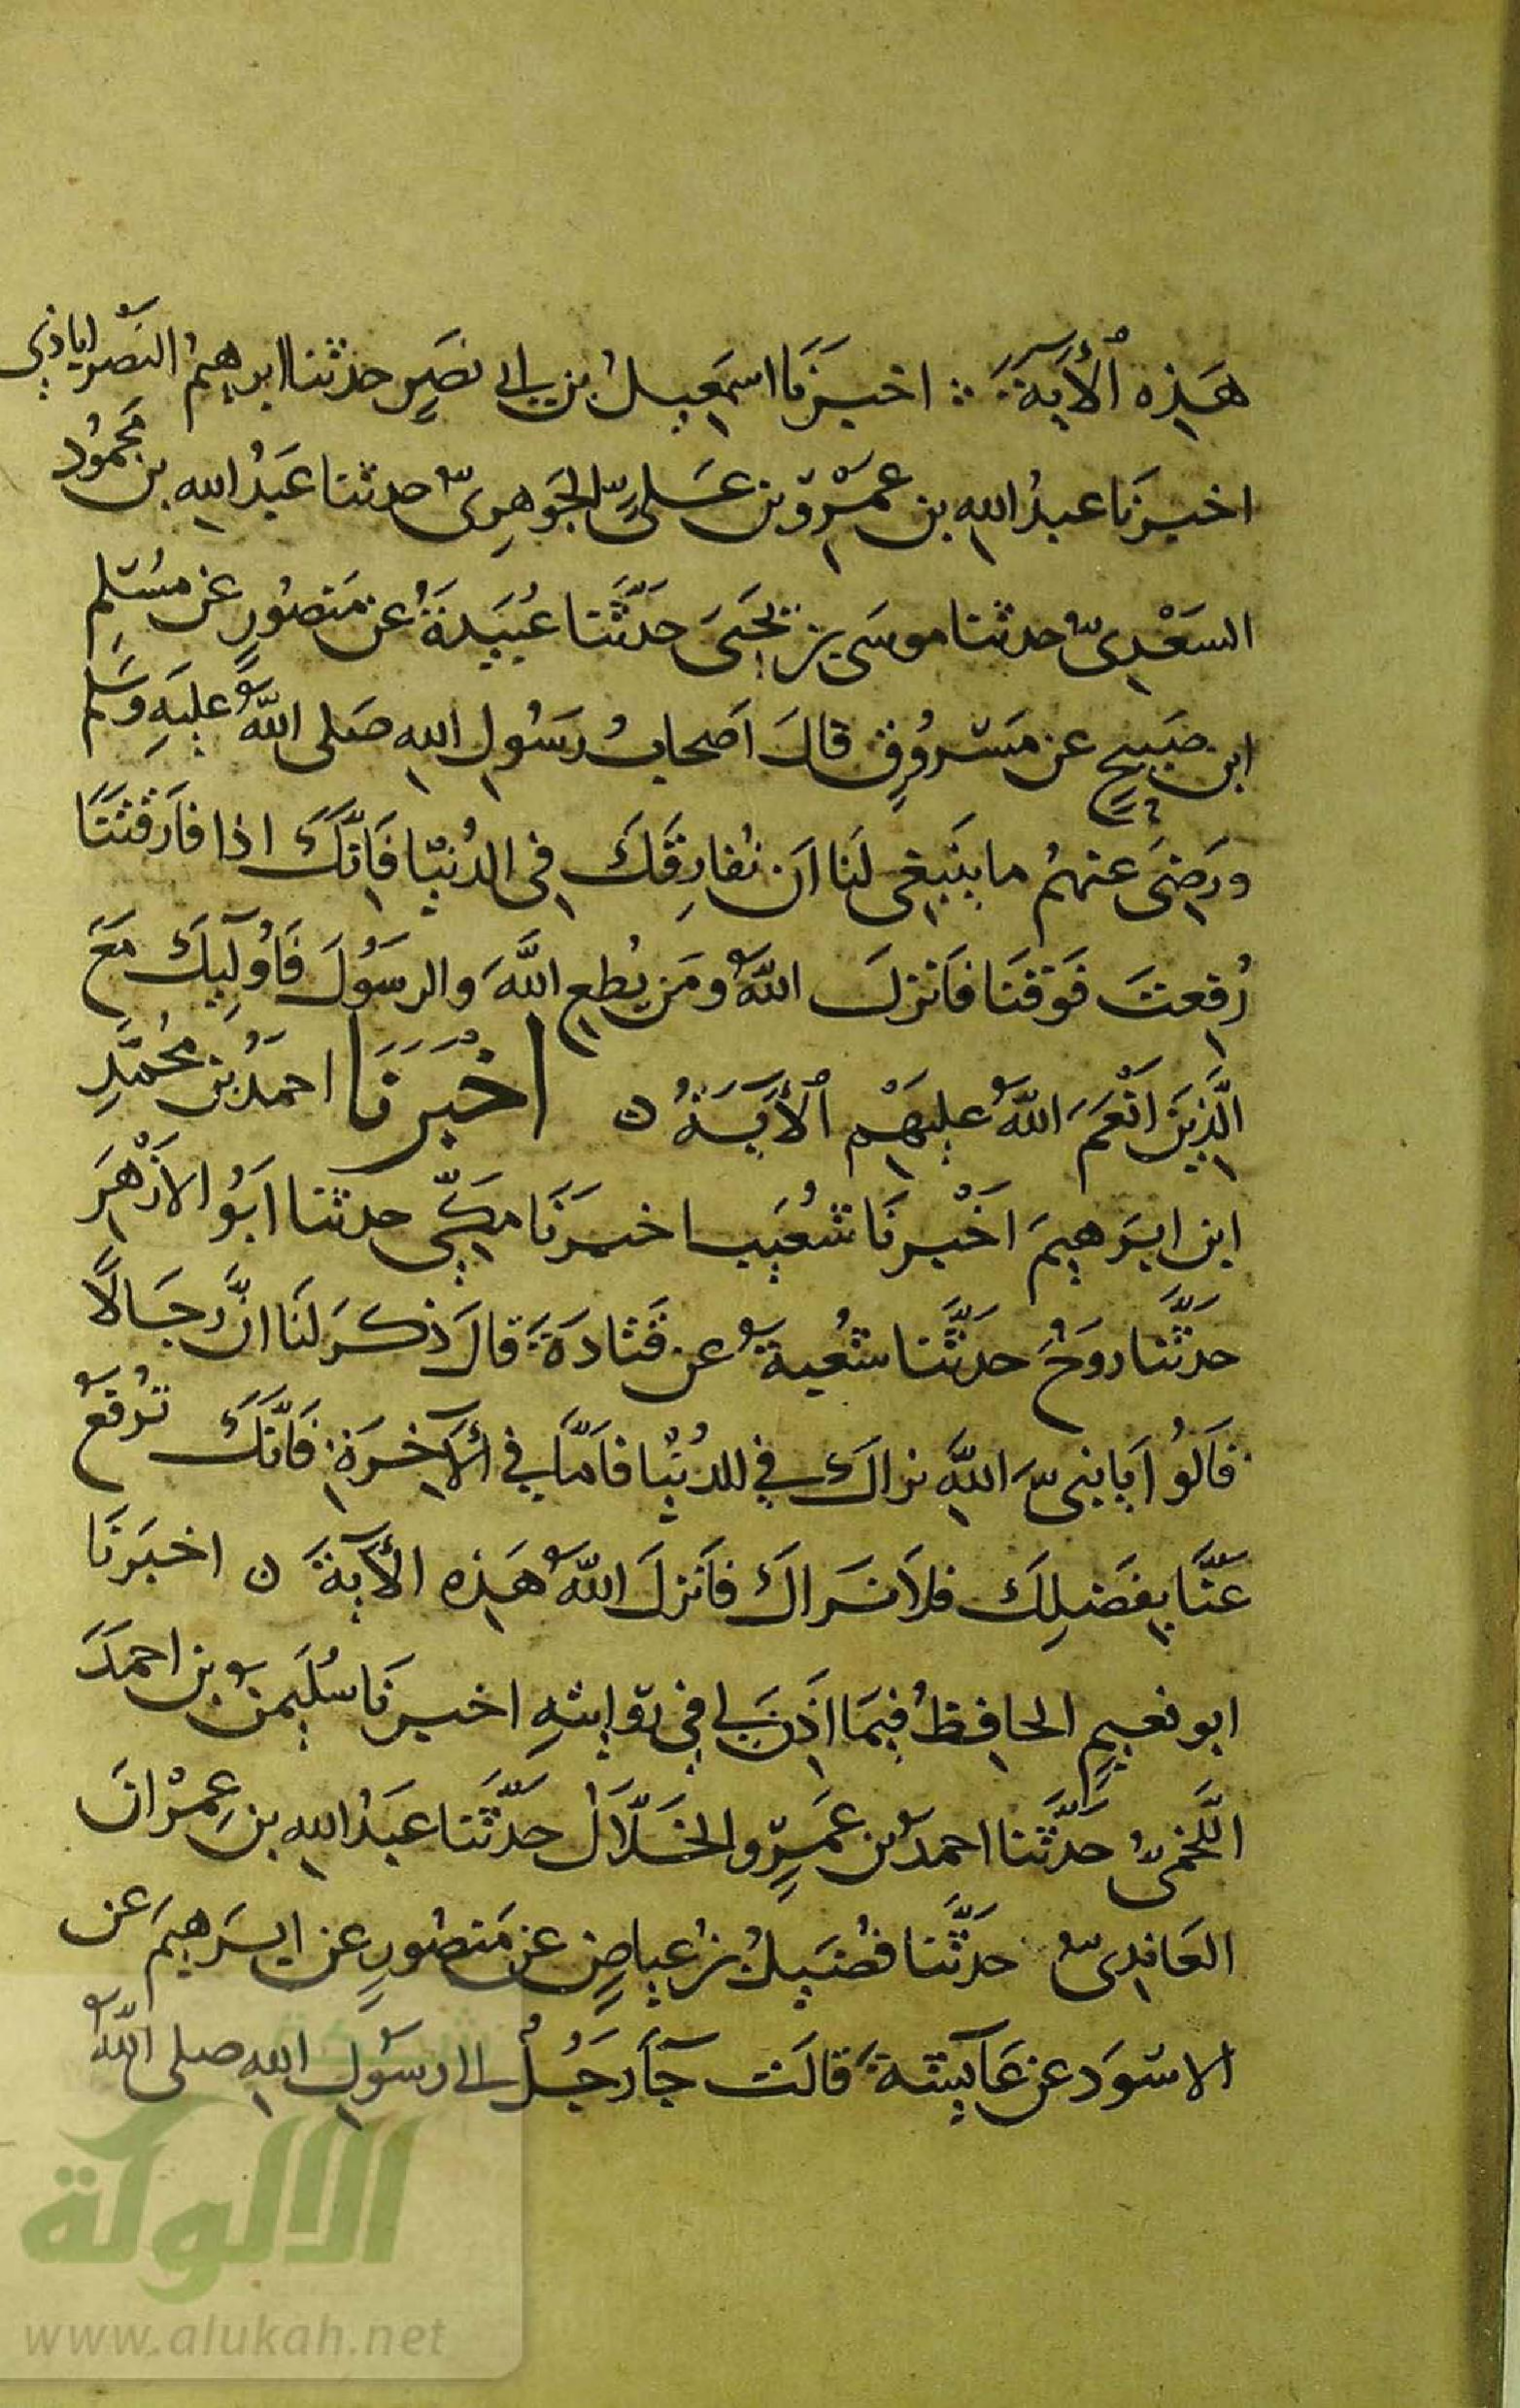 هَذِهِ ٱلْأَيَةَ ∴ اخبَرَنَا اسمَعِيلُ بن ابى نصَرٍ حدثنا ابرهيمُ النَصْراباذي
اخبرنَا عبدُ اللهِ بن عَمْرِو بن عَلىٍّ الجَوهَرِىّ حدثنا عَبدُ اللهِ بن محمُود
السَعْدِىّ حدثنا موسَى بن يحَيىَ حَدَّثَنا عُبَيدَةُ عن مَنصُورٍ عن مُسْلِم
ابن صَبيحٍ عن مَسْروُقٍ قالَ اَصحابُ رَسُولِ اللهِ صَلى اللّهُ عليَهِ وَسَلم
ورَضِىَ عنهمُ ما ينَبغِى لَنا اَن نُفارِقَكَ فِى الدُنيّا فَاِنَّكَ اذا فارَقْتَنَا
رُفِعتَ فَوقَنَا فاَنزلَ اللّهُ ومَن يُطعِ اللَّهَ والرسَوُلَ فَاُولَٓيِكَ مَعَ
الَّذِينَ انَعْمَ اللّهُ علِيَهْم ٱلْأَيَةُ ن اخْبَرَنَا احمَدُ بن مُحمَّدِ
ابن ابرَهِيمَ اَخْبرنَا شُعَيب اخبَرَنَا مَكِّيّ حدثنا ابَوُ الاَزْهَرِ
حدَّثَنا روَحُ حدَثَّنا شُعبةُ عن قَتادَةَ قالَ ذكَرَ لَنَا انَّ رجَالًا
قاَلوُا يَا نبىَّ اللَّهِ نراكَ في الدُنيٰا فاَمّاَ في الْآخِرَةِ فَاِنَّكَ تُرفَعُ
عَنَّا بِفَضلِكَ فلاَ نَراكَ فاَنزلَ اللّهُ هَذِه الْأَيةَ ن اخبَرنَا
ابو نعَيمٍ الحافِظُ فِيمَا اَذِنَ لى فِي رِوايتهِ اخبرنَا سُلَيمنُ بن احمَدَ
اللَّخمِىُّ حَدَّثَنا احمدُ بن عَمرٍو الخَلَّالُ حَدَّثَنا عَبدُ اللهِ بن عِمْرانَ
العَابِدِىّ حَدثَّنا فضُيَلُ بنُ عِياضٍ عن مَنصُورٍ عن ابرَهيمَ عن
الاسْوَد عن عَآيشةَ قالَت جآَ رَجُلٌ الى رسَوُلِ اللهِ صلى اللّهُ
شبكة
الألوكة
www.alukah.net